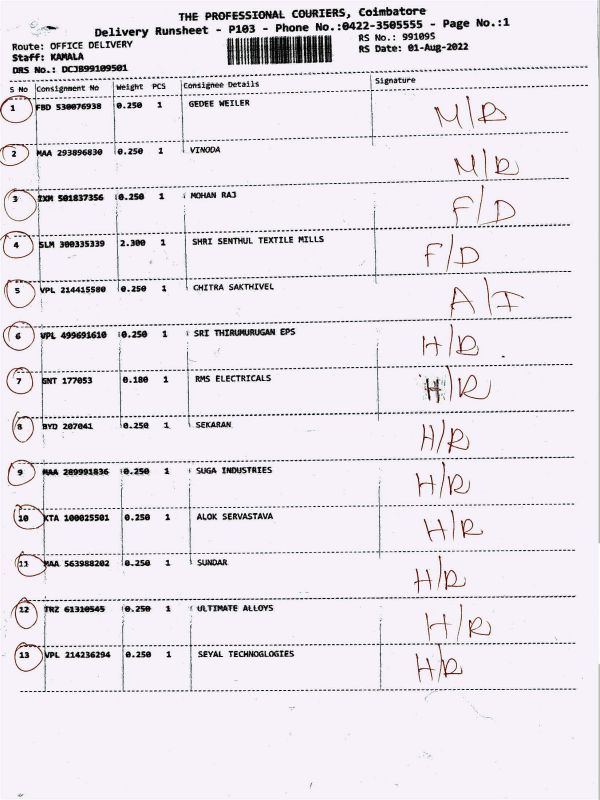 THE PROFESSIONAL COURIERS, Coimbatore
Delivery Runsheet - P103 - Phone No.:0422-3505555 - Page No.:1
Route: OFFICE DELIVERY
RS No.: 991095
Staff: KAMALA
RS Date: 01-Aug-2022
DRS No.: DCJB99109501
S No Consignment No Weight PCS Consignee Details Signature
1 FBD 530076938 0.250 1 GEDEE WEILER M/R
2 MAA 293896830 0.250 1 VINODA M/R
3 IXM 501837356 0.250 1 MOHAN RAJ F/D
4 SLM 300335339 2.300 1 SHRI SENTHUL TEXTILE MILLS F/D
5 VPL 214415580 0.250 1 CHITRA SAKTHIVEL A/I
6 VPL 499691610 0.250 1 SRI THIRUMURUGAN EPS H/R
7 GNT 177053 0.180 1 RMS ELECTRICALS H/R
8 BYD 207041 0.250 1 SEKARAN H/R
9 MAA 289991836 0.250 1 SUGA INDUSTRIES H/R
10 KTA 100025501 0.250 1 ALOK SERVASTAVA H/R
11 MAA 563988202 0.250 1 SUNDAR H/R
12 TRZ 61310545 0.250 1 ULTIMATE ALLOYS H/R
13 VPL 214236294 0.250 1 SEYAL TECHNOGLOGIES H/R